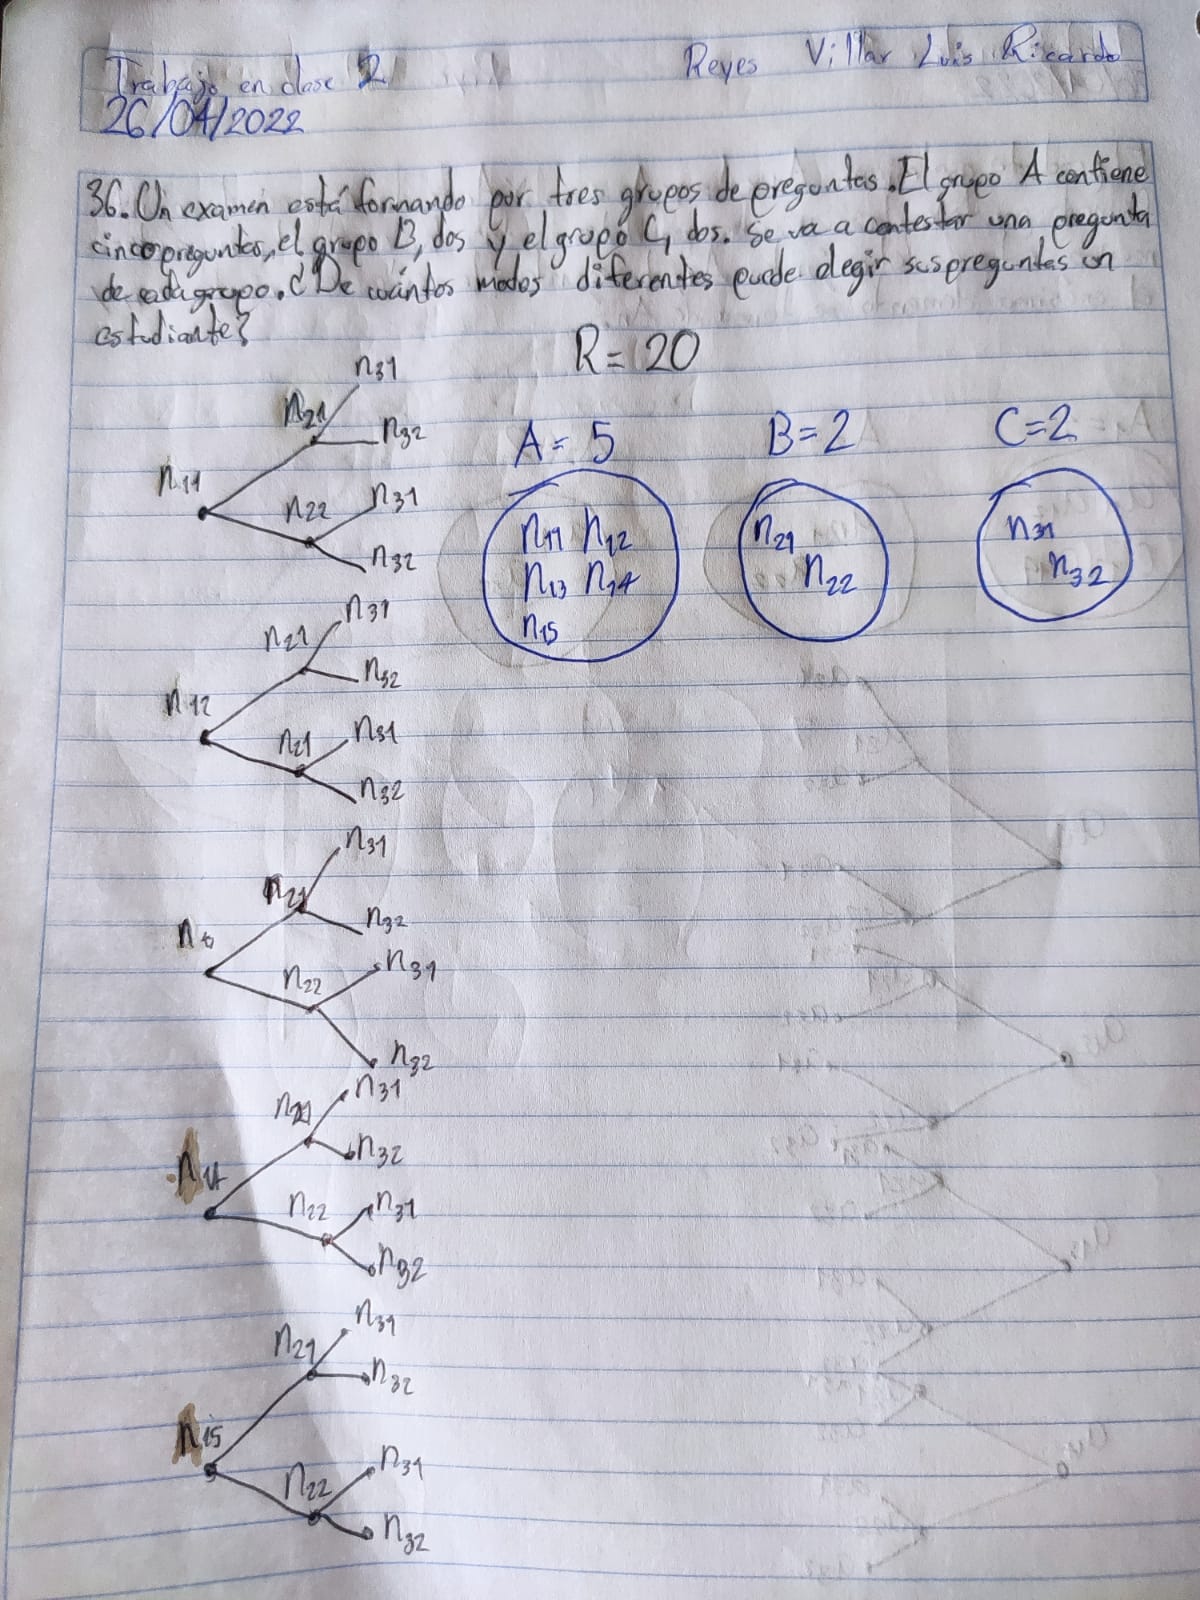 Trabajo en clase 2
Reyes Villar Luis Ricardo
26/04/2022
36. Un examen está formando por tres grupos de preguntas. El grupo A contiene
cinco preguntas, el grupo B, dos y el grupo C, dos. Se va a contestar una pregunta
de cada grupo. ¿De cuántos modos diferentes puede elegir sus preguntas un
estudiante?
R= 20
A= 5
B=2
C=2
n11 n12
n13 n14
n15
n21
n22
n31
n32
n31
n21
n32
n11
n22
n31
n32
n31
n21
n32
n12
n21
n31
n32
n31
n21
n32
n22
n31
n32
n31
n21
n32
n14
n22
n31
n32
n31
n21
n32
n15
n22
n31
n32